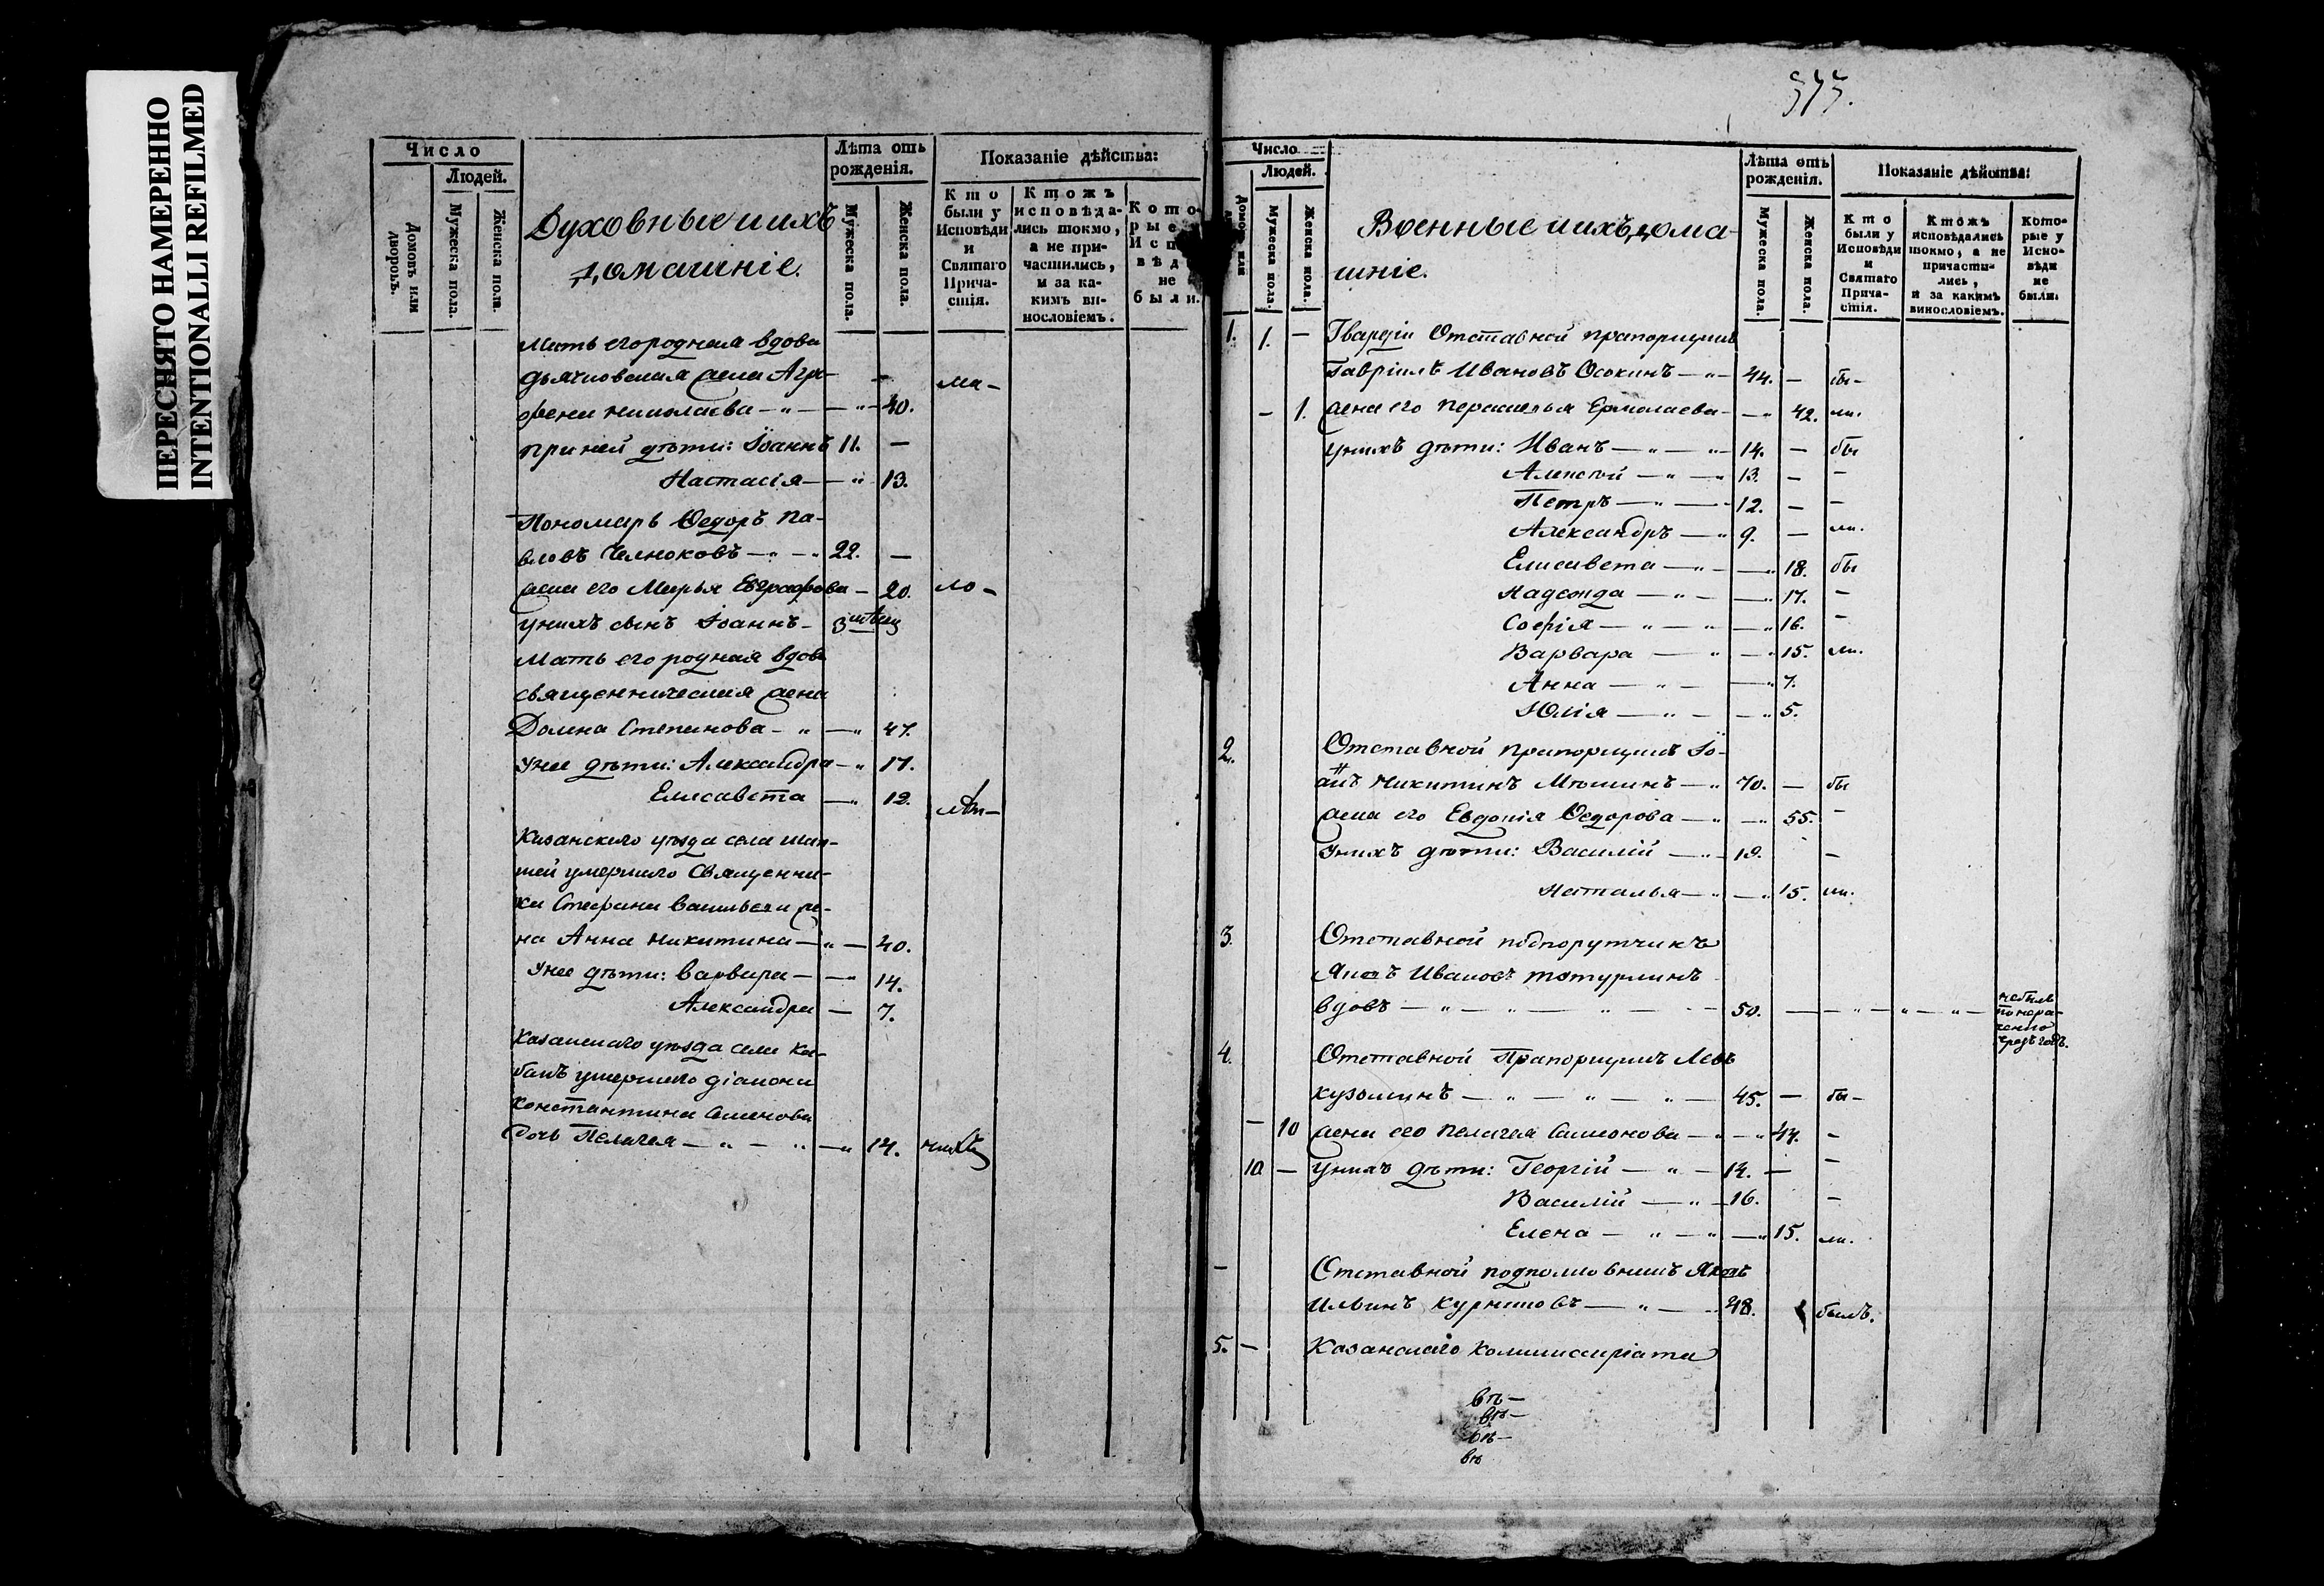 ПЕРЕСНЯТО НАМЕРЕННО
INTENTIONALLI REFILMED
Число
Людей.
Домовъ или дворовъ.
Мужеска пола.
Женска пола.
Духовные и ихъ
домашніе.
Лѣта отъ
рожденія.
Мужеска пола.
Женска пола.
Показаніе дѣйства:
Кто
были у
Исповѣди
и
Святаго
Прича-
стія.
Ктожъ
исповѣда-
лись токмо,
а не при-
частились,
и за ка-
кимъ ви-
нословіемъ.
Кото-
рые
Исп
вѣд
не
были.
Мать его родная вдова
дьячковская жена Агра-
фена Николаева — 40.
при ней дѣти: Іоаннъ 11. —
Настасія — 13.
Пономарь Ѳедоръ Па-
вловъ Челноковъ — 22. —
жена его Марья Евграфова — 20. ло-
у нихъ сынъ Іоаннъ - 3
Мать его родная вдова
священническая жена
Домна Степанова — 47.
у нее дѣти: Александра — 17.
Елисавета — 12.
Казанскаго уѣзда села Шап-
шей умершаго Священни-
ка Стефана Васильева же-
на Анна Никитина — 40.
у нее дѣти: Варвара — 14.
Александра — 7.
Казанскаго уѣзда села Ка-
банъ умершаго діакона
Константина Семенова
дочь Пелагея — 14.
Число
Людей.
Домовъ или
Мужеска пола.
Женска пола.
Военные и ихъ дома-
шніе.
Лѣта отъ
рожденія.
Мужеска пола.
Женска пола.
Показаніе дѣйства:
Кто
были у
Исповѣди
и
Святаго
Прича-
стія.
Ктожъ
исповѣдались
токмо, а не
причасти-
лись,
и за какимъ
винословіемъ.
Кото-
рые у
Испо-
вѣди
не
были.
1. 1. — Гвардіи Отставной прапорщикъ
Гавріилъ Ивановъ Осокинъ — 44. — бы-
— 1. жена его Ермолаева — 42. ли.
у нихъ дѣти: Иванъ — 14. — бы
Алексѣй — 13. — —
Петръ — 12. — —
Александръ — 9. — ли.
Елисавета — 18. бы
Надежда — 17. —
Софія — 16. —
Варвара — 15. ли.
Анна — 7.
Юлія — 5.
2. Отставной прапорщикъ Іо-
аннъ Никитинъ Мошинъ — 70. — бы
жена его Евдокія Ѳедорова — 55. —
у нихъ дѣти: Василій — 19. —
Наталья — 15. ли.
3. Отставной подпорутчикъ
Яковъ Ивановъ
вдовъ — 50. — небылъ
по нера-
ченію
чрезъ годъ.
4. Отставной Прапорщикъ Левъ
Кузьминъ — 45. — бы-
— 10 жена его Пелагея Симонова — 47. —
10. — у нихъ дѣти: Георгій — 14. — —
Василій — 16. —
Елена — 15. ли.
— Отставной подполковникъ Яковъ
Ильинъ — 48. былъ.
5. — Казанскаго Коммиссаріата
въ —
въ —
въ —
въ